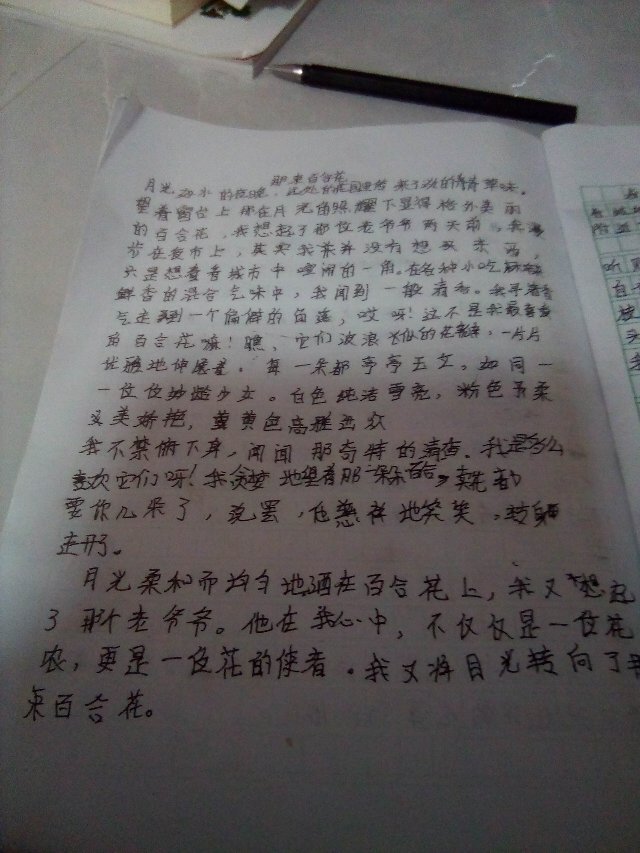 那束百合花
月光如水的夜晚,近处的花园里带来了淡的青草味。
望着窗台上那在月光的照耀下显得格外美丽
的百合花,我想起了那位老爷爷两天前,我漫
步在夜市上,其实我茶并没有想买东西,
只是想看看城市中喧闹的一角。在各种小吃
鲜香的混合气味中,我闻到一股清香。我寻着香
气走到一个偏僻的角落,哎呀!这不是我最喜爱
的百合花嘛!瞧,它们波浪似的花瓣,一片片
优雅地伸展着。每一朵都亭亭玉立,如同一
一位位妙龄少女。白色纯洁雪亮,粉色柔
美娇艳,黄色高雅出众
我不禁俯下身,闻闻那奇特的清香。我是多么
喜欢它们呀!我贪婪地望着那一朵朵百合
要你几来了,说罢,他慈祥地笑笑,转身
走开了。
月光柔和而均匀地洒在百合花上,我又想起
了那个老爷爷。他在我心中,不仅仅是一位花
农,更是一位花的使者。我又将目光转向了那
束百合花。